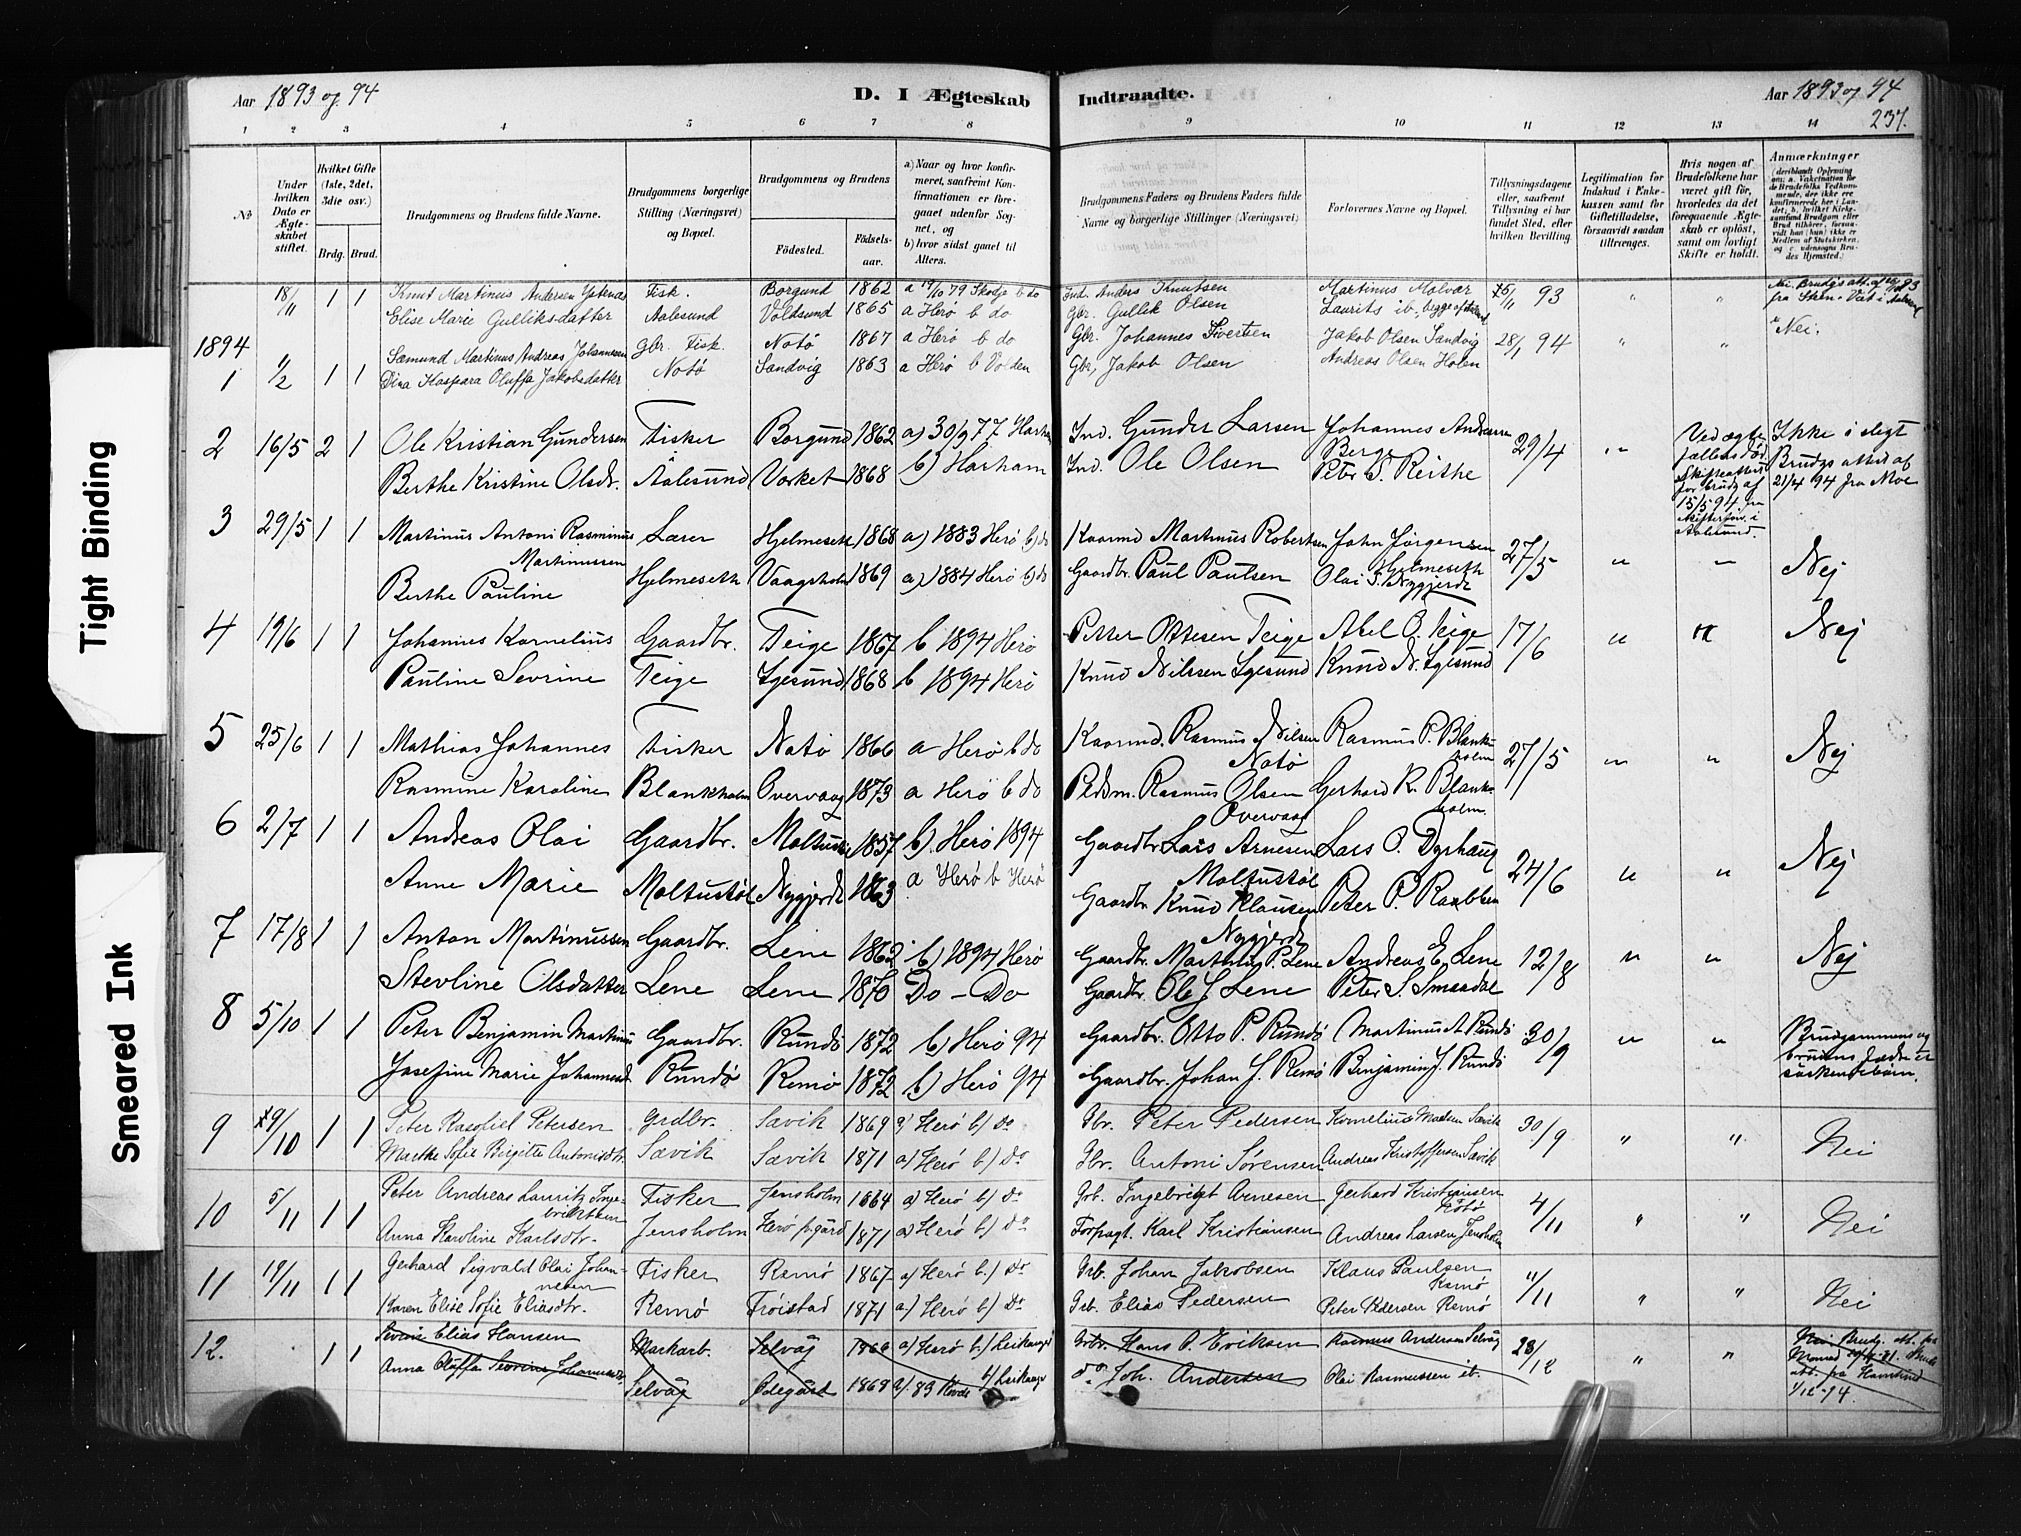 Tight Binding
Smeared Ink
Aar 1893 og 94
D. I Ægteskab
Indtraadte.
Aar 1893 og 94
237.
1 2 3 4 5 6 7 8 9 10 11 12 13 14
No
Under hvilken Dato er Ægteskabet stiftet.
Hvilket Gifte (1ste, 2det, 3die osv.)
Brdg. Brud.
Brudgommens og Brudens fulde Navne.
Brudgommens borgerlige Stilling (Næringsvei) og Bopæl.
Brudgommens og Brudens
Fødested.
Fødselsaar.
a) Naar og hvor konfirmeret, saafremt Konfirmationen er foregaaet udenfor Sognet, og
b) hvor sidst gaaet til Alters.
Brudgommens Faders og Brudens Faders fulde Navne og borgerlige Stillinger (Næringsvei)
Forlovernes Navne og Bopæl.
Tillysningsdagene eller, saafremt Tillysning ei har fundet Sted, efter hvilken Bevilling.
Legitimation for Indskud i Enkekassen samt for Giftetilladelse, forsaavidt saadan tiltrænges.
Hvis nogen af Brudefolkene har været gift før, hvorledes da det foregaaende Ægteskab er opløst, samt om lovligt Skifte er holdt.
Anmærkninger
18/11 1 1 Knut Martinus Andersen Fisk. Borgund 1862 a 19/10 79 Skodje b do Ind. Anders Knutsen Martinus Molvær 93 " "
Elise Marie Gulliksdatter Aalesund Voldsund 1865 a Herø b do Gbr. Gullik Olsen Laurits ib.
1894
1 1/2 1 1 Sæmund Martinus Andreas Johannessen Gbr. Fisk. Notø 1867 a Herø b do Gbr. Johannes Sivertsen Jakob Olsen Sandvig 28/1 94 " " Nei.
Dina Kaspara Oluffa Jakobsdatter Notø Sandvig 1863 a Herø b Volden Gbr. Jakob Olsen Andreas Olsen Holen
2 16/5 2 1 Ole Kristian Gundersen Fisker Borgund 1862 a) 30/9 77 Harham Ind. Gunder Larsen Johannes Berge 29/4 " Ved ægtefællens død. Ikke i slegt
Berthe Kristine Olsdr. Aalesund Vorket 1868 b) Harham Ind. Ole Olsen Peter S. Reithe 21/4 94 fra Moe
3 29/5 1 1 Martinus Antoni Rasminus Martinussen Lærer Hjelmeseth 1868 a) 1883 Herø b) do Kaarmd Martinus Robertsen John Jørgensen Hjelmeseth 27/5 " " Nej
Berthe Pauline Hjelmeseth Vaagsholm 1869 a) 1884 Herø b) do Gaardbr. Paul Paulsen Olai S. Nygjerde
4 19/6 1 1 Johannes Kornelius Gaardbr. Teige 1867 b 1894 Herø Petter Ottesen Teige Abel O. Teige 17/6 " " Nej
Pauline Sevrine Teige Igesund 1868 b 1894 Herø Knud Nilssen Igesund Knud N. Igesund
5 25/6 1 1 Mathias Johannes Fisker Notø 1866 a Herø b do Kaarmd. Rasmus Nilsen Notø Rasmus P. Blankholm 27/5 " " Nej
Rasmine Karoline Blankholm Overvaag 1873 a Herø b do Rasmus Olsen Overvaag Gerhard R. Blankholm.
6 2/7 1 1 Andreas Olai Gaardbr. 1857 b) Herø 1894 Gaardbr. Lars Arnesen Moltustøl Lars O. Dyrhaug 24/6 " " Nej
Anne Marie Moltustøl Nygjerde 1863 a Herø b Herø Gaardbr. Knud Klausen Nygjerde Peter P. Rabben
7 17/8 1 1 Anton Martinussen Gaardbr. Lene 1862 b) 1894 Herø Gaardbr. Martinus P. Lene Andreas E. Lene 12/8 " " Nej
Stevline Olsdatter Lene Lene 1870 Do - Do Gaardbr. Ole J. Lene Peter S.
8 5/10 1 1 Peter Benjamin Martinus Gaardbr. Rundø 1872 b) Herø 94 Gaardbr. Otto P. Rundø Martinus A. Rundø 30/9 " " Brudgommens og brudens fædre er søskendebørn.
Josefine Marie Johannesd Rundø Remø 1872 b) Herø 94 Gaardbr. Johan J. Remø Benjamin J. Rundø
9 1 1 Peter Rasofiel Petersen Grdbr. Sævik 1869 a) Herø b) do Gbr. Peter Pedersen Kornelius Madsen Sævik 30/9 " " Nei
Marthe Sofie Birgitte Antonisdtr. Sævik Sævik 1871 a) Herø b.) do Gbr. Antoni Sørensen Andreas Kristoffersen Sævik
10 5/11 1 1 Peter Andreas Lauritz Ingebriktsen Fisker Jensholm 1864 a) Herø b) do Ingebrigt Arnesen Gerhard Kristiansen 4/11 " " Nei
Anna Karoline Karlsdtr. Jensholm Herø p.gård 1871 a) Herø b) do Forpagt. Karl Kristiansen Andreas Larsen Jensholm
11 19/11 1 1 Gerhard Sigvald Olai Johannesen Fisker Remø 1867 a) Herø b.) do Grb. Johan Jakobsen Klaus Paulsen Remø 11/11 " " Nei
Karen Elise Sofie Eliasdtr. Remø Frøistad 1871 a) Herø b) do Grb. Elias Pedersen Peter Pedersen Remø
12. 1 1 Elias Hansen Markarb. Selvåg 1866 a) Herø b.) Leikanger Hans O. Eriksen Rasmus Andersen Selvåg 28/12 " "
Anna Oluffa Sevrine Selvåg Ødegård 1869 b) Leikanger do Joh. Andersen Olai Rasmussen ib. 1/12 94.